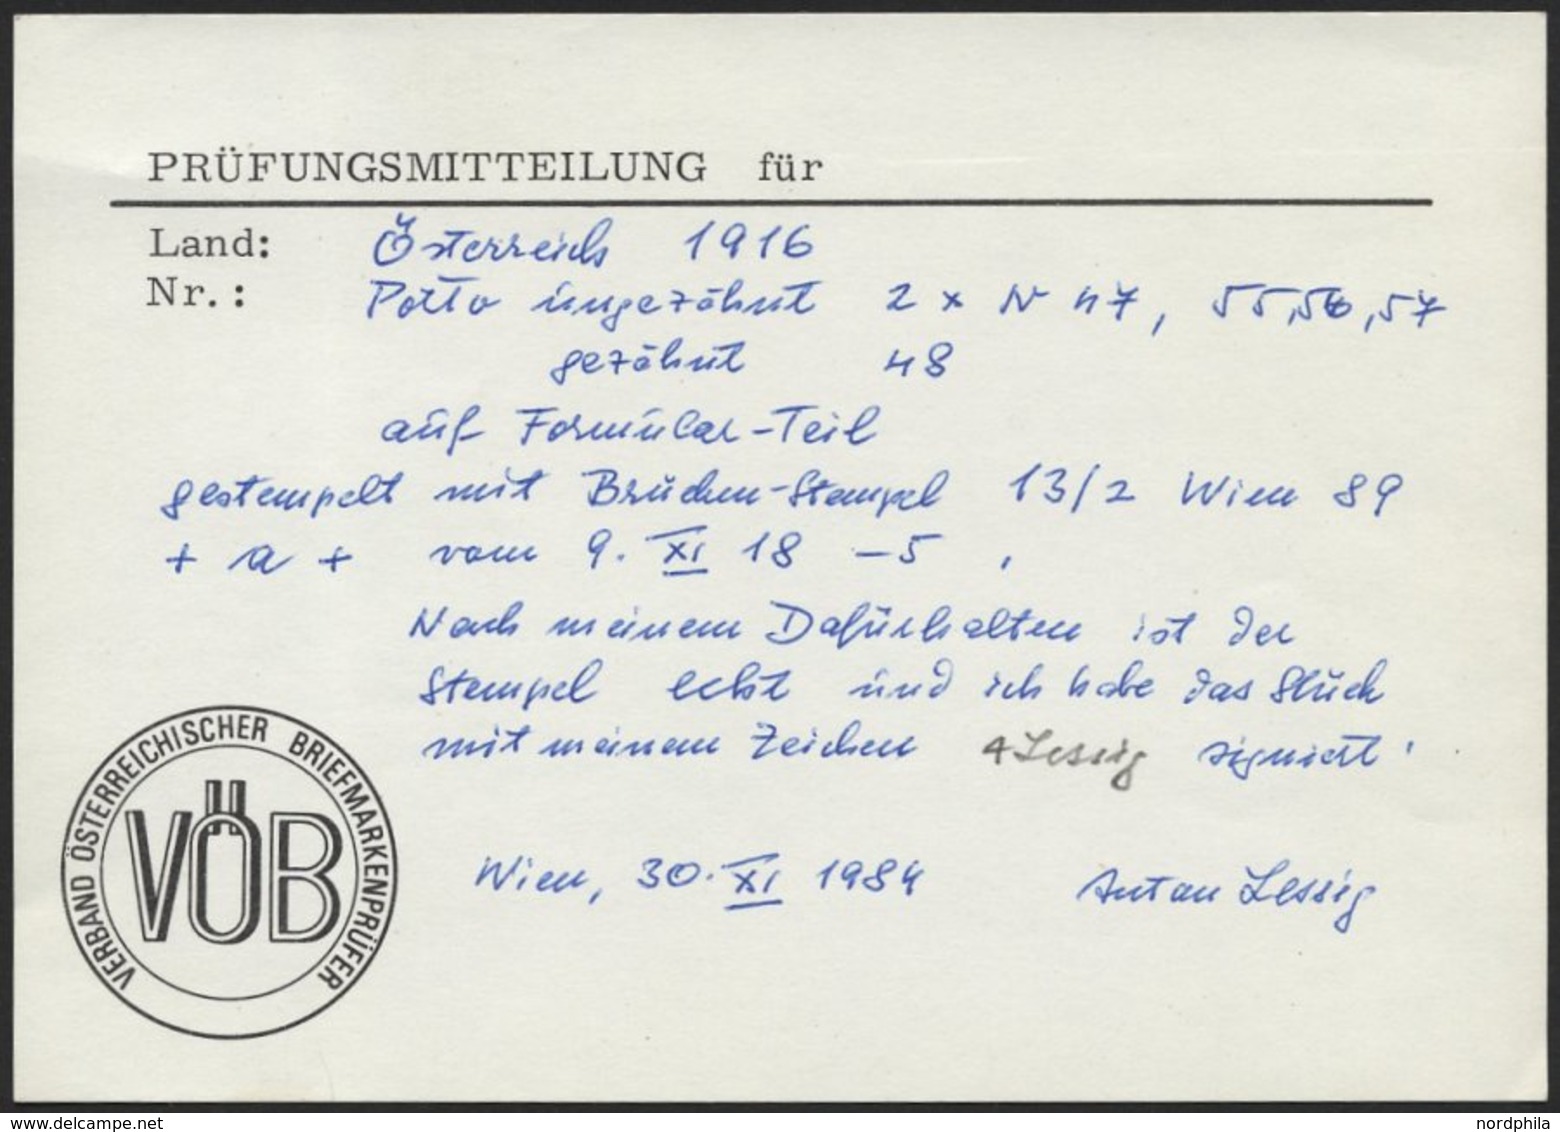 PRÜFUNGSMITTEILUNG für
Land: Österreich 1916
Nr.: Porto ungezähnt 2 x N 47, 55, 56, 57
gezähnt 48
auf Formular-Teil
gestempelt mit Brücken-Stempel 13/2 Wien 89
+ a + vom 9. XI 18 -5,
Nach meinem Dafürhalten ist der
Stempel echt und ich habe das Stück
mit meinem Zeichen A Lessig signiert.
VERBAND ÖSTERREICHISCHER BRIEFMARKENPRÜFER
VÖB
Wien, 30. XI 1984 Anton Lessig
delcampe.net
nordphila